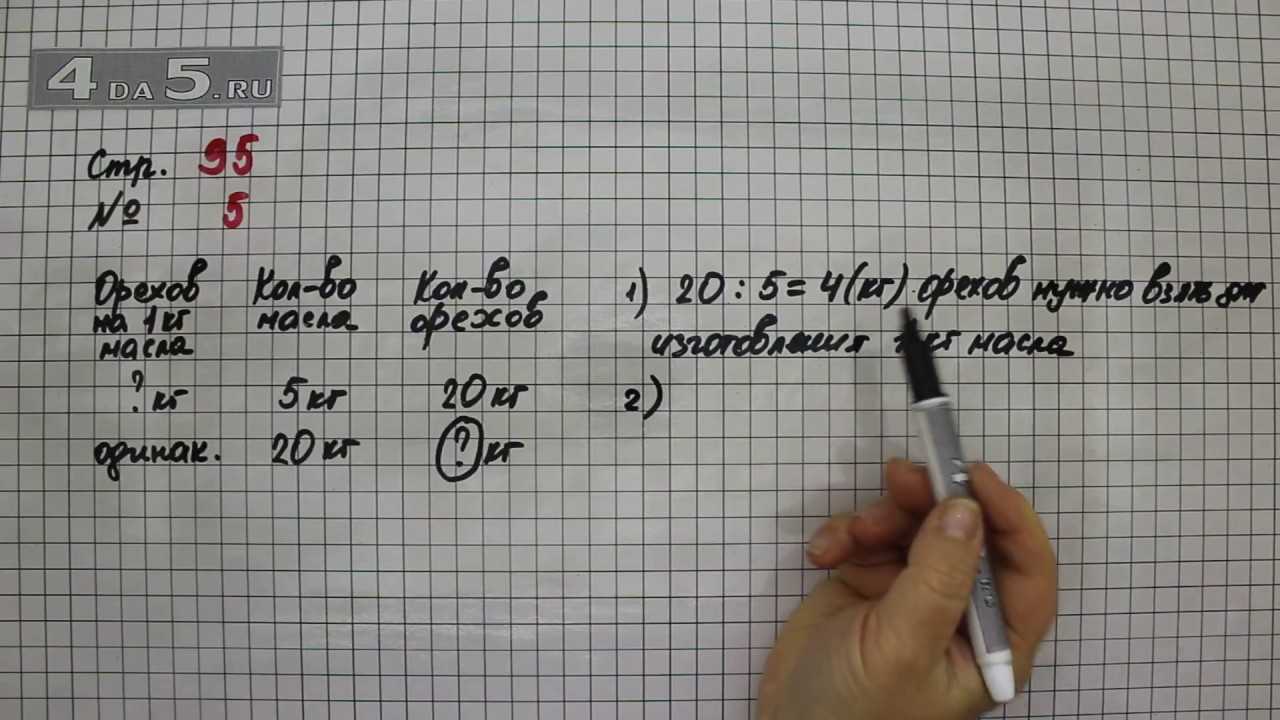 4DA5.RU
Стр. 95
№ 5
Орехов на 1 кг масла
Кол-во масла
Кол-во орехов
? кг 5 кг 20 кг
одинак. 20 кг ? кг
1) 20 : 5 = 4 (кг) орехов нужно взять для
изготовления кг масла
2)